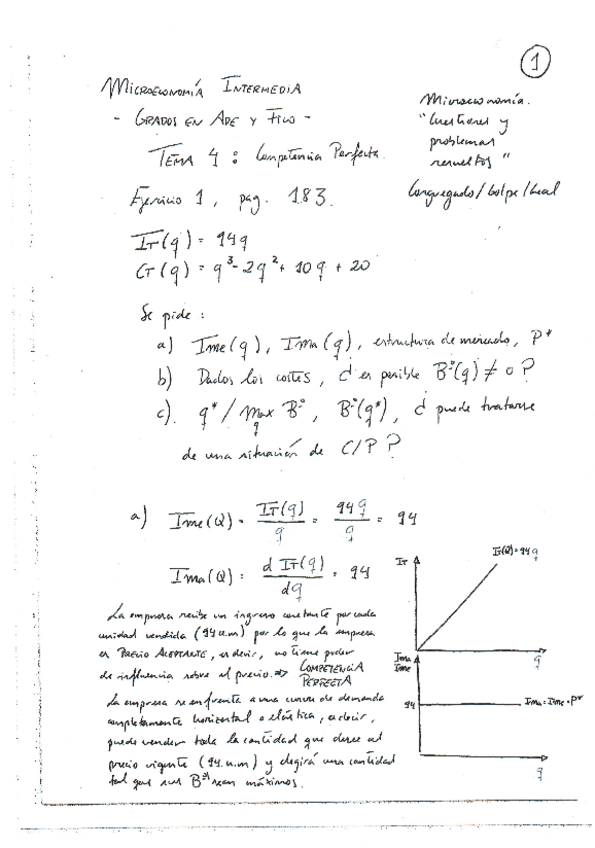 1
MICROECONOMÍA INTERMEDIA
- GRADOS EN ADE Y FICO -
TEMA 4: Competencia Perfecta.
Ejercicio 1, pag. 183.
Microeconomía.
"Cuestiones y
problemas
resueltos"
Congregado/Golpe/Leal
IT(q) = 94q
CT(q) = q³ - 2q² + 10q + 20
Se pide:
a) Ime(q), Ima(q), estructura de mercado, P*
b) Dados los costes, ¿es posible Bº(q) ≠ 0?
c). q* / Max Bº, Bº(q*), ¿puede tratarse
q
de una situación de C/P?
a) Ime(Q) = IT(q)/q = 94q/q = 94
Ima(Q) = d IT(q)/dq = 94
La empresa recibe un ingreso constante por cada
unidad vendida (94 u.m) por lo que la empresa
es PRECIO ACEPTANTE, es decir, no tiene poder
de influencia sobre el precio. ⇒ COMPETENCIA
PERFECTA
La empresa se enfrenta a una curva de demanda
completamente horizontal o elástica, es decir,
puede vender toda la cantidad que desee al
precio vigente (94 u.m) y elegirá una cantidad
tal que sus Bºs sean máximos.
IT
IT(Q)=94q
q
Ima
Ime
94
Ima=Ime=P*
q